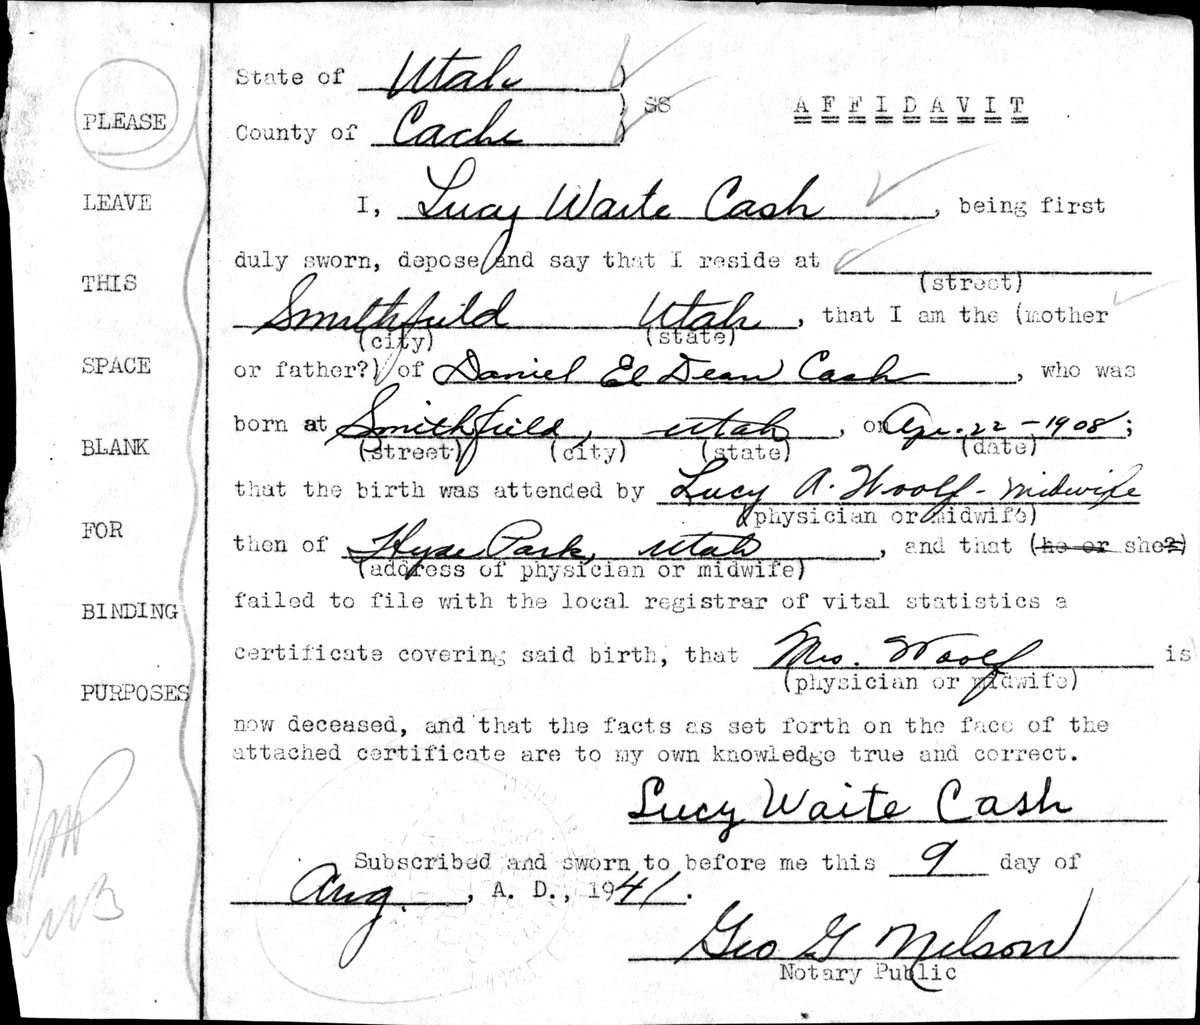 State of Utah )
) SS A F F I D A V I T
County of Cache )
I, Lucy Waite Cash, being first
duly sworn, depose and say that I reside at
(street)
Smithfield Utah, that I am the (mother
(city) (state)
or father?) of Daniel El Dean Cash, who was
born at Smithfield, Utah, on Apr. 22 - 1908;
(street) (city) (state) (date)
that the birth was attended by Lucy A. Woolf - midwife
(physician or midwife)
then of Hyde Park, Utah, and that (he or she?)
(address of physician or midwife)
failed to file with the local registrar of vital statistics a
certificate covering said birth, that Mrs. Woolf is
(physician or midwife)
now deceased, and that the facts as set forth on the face of the
attached certificate are to my own knowledge true and correct.
Lucy Waite Cash
Subscribed and sworn to before me this 9 day of
Aug., A. D., 1941.
Geo G Nelson
Notary Public
PLEASE
LEAVE
THIS
SPACE
BLANK
FOR
BINDING
PURPOSES